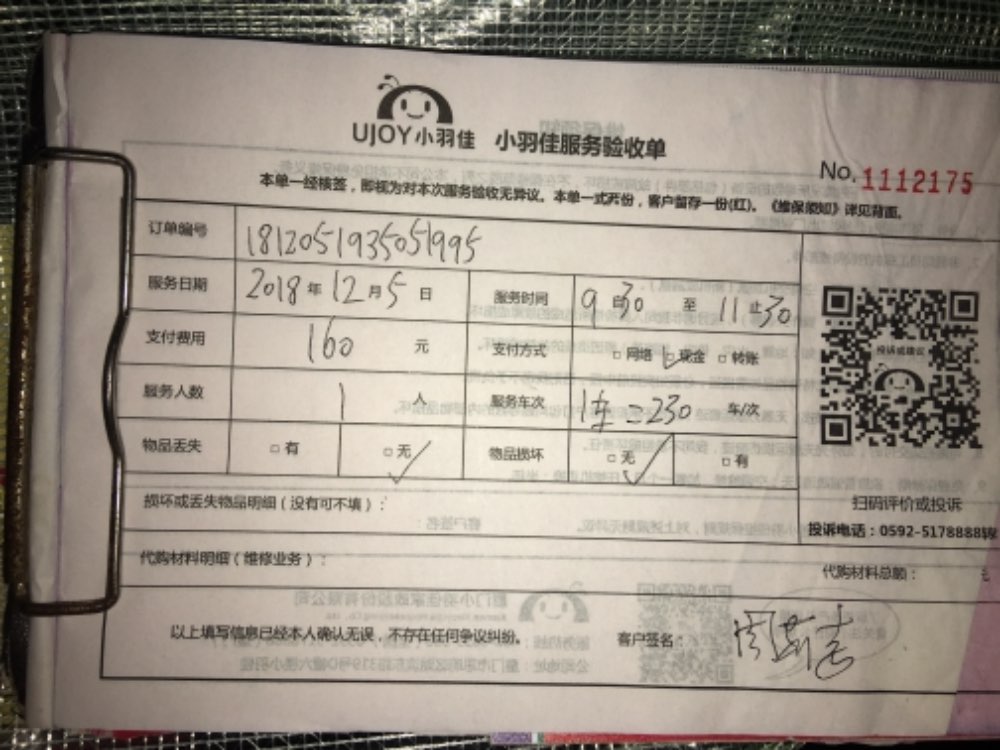 UJOY小羽佳 小羽佳服务验收单
No. 1112175
本单一经核签，即视为对本次服务验收无异议。本单一式两份，客户留存一份(红)。《维保须知》详见背面。
订单编号 1812051935051995
服务日期 2018年12月5日 服务时间 9 30 至 11 30
支付费用 160 元 支付方式 □网络 □现金 □转账
服务人数 1 人 服务车次 230 车/次
物品丢失 □有 □无 物品损坏 □无 □有
投诉或建议
扫码评价或投诉
投诉电话：0592-5178888转
损坏或丢失物品明细（没有可不填）：
代购材料明细（维修业务）： 代购材料总额： 元
以上填写信息已经本人确认无误，不存在任何争议纠纷。 客户签名：